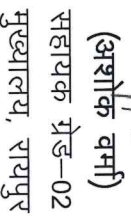 (अशोक वर्मा)
सहायक ग्रेड–02
मुख्यालय, रायपुर